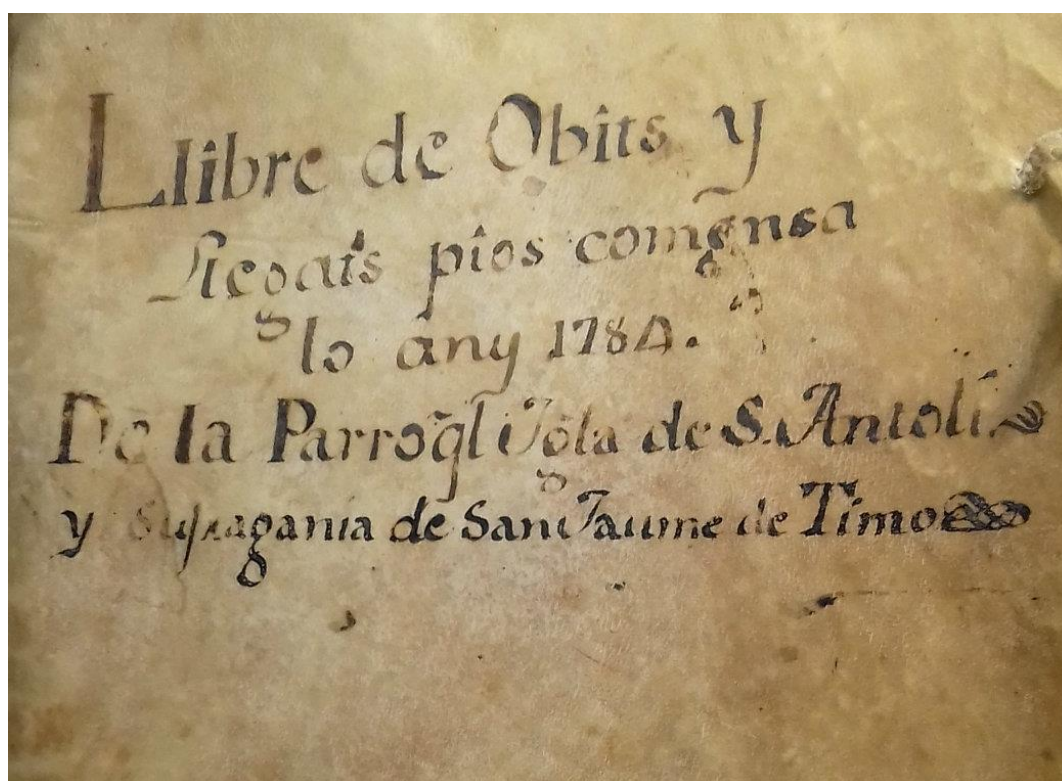 Llibre de Obits y
Llegats pios comensa
lo any 1784.
De la Parroql Igla de S. Antoli
y sufragania de San Jaume de Timor